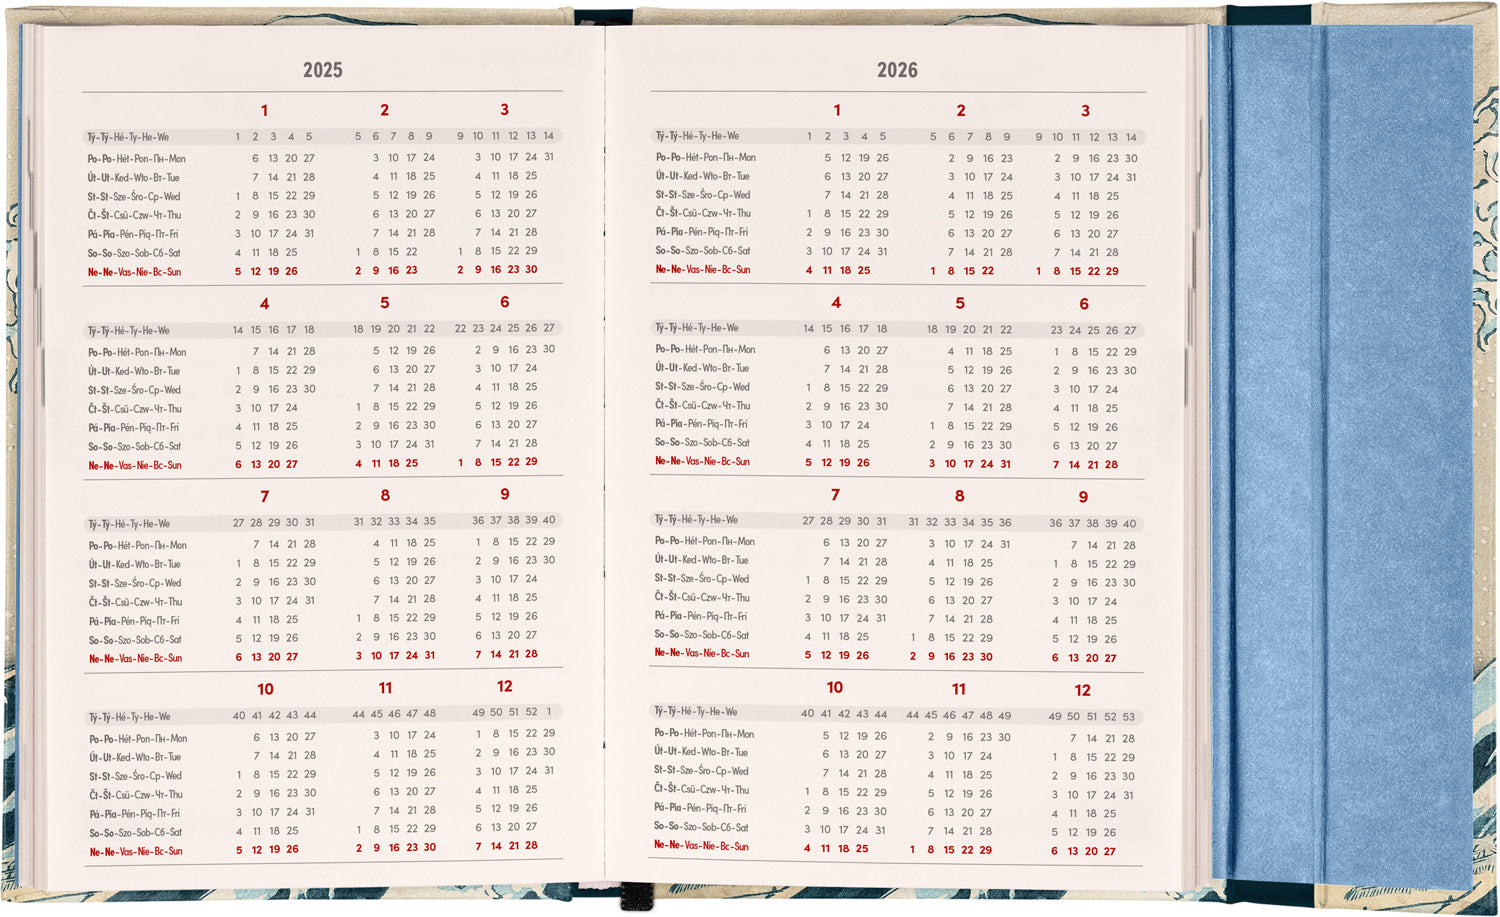 2025
1 2 3
Tý-Tý-Hé-Ty-Не-We 1 2 3 4 5 5 6 7 8 9 9 10 11 12 13 14
Po-Po-Hét-Pon-Пн-Mon 6 13 20 27 3 10 17 24 3 10 17 24 31
Út-Ut-Ked-Wto-Вт-Tue 7 14 21 28 4 11 18 25 4 11 18 25
St-St-Sze-Śro-Ср-Wed 1 8 15 22 29 5 12 19 26 5 12 19 26
Čt-Št-Csü-Czw-Чт-Thu 2 9 16 23 30 6 13 20 27 6 13 20 27
Pá-Pia-Pén-Pią-Пт-Fri 3 10 17 24 31 7 14 21 28 7 14 21 28
So-So-Szo-Sob-Сб-Sat 4 11 18 25 1 8 15 22 1 8 15 22 29
Ne-Ne-Vas-Nie-Вс-Sun 5 12 19 26 2 9 16 23 2 9 16 23 30
4 5 6
Tý-Tý-Hé-Ty-Не-We 14 15 16 17 18 18 19 20 21 22 22 23 24 25 26 27
Po-Po-Hét-Pon-Пн-Mon 7 14 21 28 5 12 19 26 2 9 16 23 30
Út-Ut-Ked-Wto-Вт-Tue 1 8 15 22 29 6 13 20 27 3 10 17 24
St-St-Sze-Śro-Ср-Wed 2 9 16 23 30 7 14 21 28 4 11 18 25
Čt-Št-Csü-Czw-Чт-Thu 3 10 17 24 1 8 15 22 29 5 12 19 26
Pá-Pia-Pén-Pią-Пт-Fri 4 11 18 25 2 9 16 23 30 6 13 20 27
So-So-Szo-Sob-Сб-Sat 5 12 19 26 3 10 17 24 31 7 14 21 28
Ne-Ne-Vas-Nie-Вс-Sun 6 13 20 27 4 11 18 25 1 8 15 22 29
7 8 9
Tý-Tý-Hé-Ty-Не-We 27 28 29 30 31 31 32 33 34 35 36 37 38 39 40
Po-Po-Hét-Pon-Пн-Mon 7 14 21 28 4 11 18 25 1 8 15 22 29
Út-Ut-Ked-Wto-Вт-Tue 1 8 15 22 29 5 12 19 26 2 9 16 23 30
St-St-Sze-Śro-Ср-Wed 2 9 16 23 30 6 13 20 27 3 10 17 24
Čt-Št-Csü-Czw-Чт-Thu 3 10 17 24 31 7 14 21 28 4 11 18 25
Pá-Pia-Pén-Pią-Пт-Fri 4 11 18 25 1 8 15 22 29 5 12 19 26
So-So-Szo-Sob-Сб-Sat 5 12 19 26 2 9 16 23 30 6 13 20 27
Ne-Ne-Vas-Nie-Вс-Sun 6 13 20 27 3 10 17 24 31 7 14 21 28
10 11 12
Tý-Tý-Hé-Ty-Не-We 40 41 42 43 44 44 45 46 47 48 49 50 51 52 1
Po-Po-Hét-Pon-Пн-Mon 6 13 20 27 3 10 17 24 1 8 15 22 29
Út-Ut-Ked-Wto-Вт-Tue 7 14 21 28 4 11 18 25 2 9 16 23 30
St-St-Sze-Śro-Ср-Wed 1 8 15 22 29 5 12 19 26 3 10 17 24 31
Čt-Št-Csü-Czw-Чт-Thu 2 9 16 23 30 6 13 20 27 4 11 18 25
Pá-Pia-Pén-Pią-Пт-Fri 3 10 17 24 31 7 14 21 28 5 12 19 26
So-So-Szo-Sob-Сб-Sat 4 11 18 25 1 8 15 22 29 6 13 20 27
Ne-Ne-Vas-Nie-Вс-Sun 5 12 19 26 2 9 16 23 30 7 14 21 28
2026
1 2 3
Tý-Tý-Hé-Ty-Не-We 1 2 3 4 5 5 6 7 8 9 9 10 11 12 13 14
Po-Po-Hét-Pon-Пн-Mon 5 12 19 26 2 9 16 23 2 9 16 23 30
Út-Ut-Ked-Wto-Вт-Tue 6 13 20 27 3 10 17 24 3 10 17 24 31
St-St-Sze-Śro-Ср-Wed 7 14 21 28 4 11 18 25 4 11 18 25
Čt-Št-Csü-Czw-Чт-Thu 1 8 15 22 29 5 12 19 26 5 12 19 26
Pá-Pia-Pén-Pią-Пт-Fri 2 9 16 23 30 6 13 20 27 6 13 20 27
So-So-Szo-Sob-Сб-Sat 3 10 17 24 31 7 14 21 28 7 14 21 28
Ne-Ne-Vas-Nie-Вс-Sun 4 11 18 25 1 8 15 22 1 8 15 22 29
4 5 6
Tý-Tý-Hé-Ty-Не-We 14 15 16 17 18 18 19 20 21 22 23 24 25 26 27
Po-Po-Hét-Pon-Пн-Mon 6 13 20 27 4 11 18 25 1 8 15 22 29
Út-Ut-Ked-Wto-Вт-Tue 7 14 21 28 5 12 19 26 2 9 16 23 30
St-St-Sze-Śro-Ср-Wed 1 8 15 22 29 6 13 20 27 3 10 17 24
Čt-Št-Csü-Czw-Чт-Thu 2 9 16 23 30 7 14 21 28 4 11 18 25
Pá-Pia-Pén-Pią-Пт-Fri 3 10 17 24 1 8 15 22 29 5 12 19 26
So-So-Szo-Sob-Сб-Sat 4 11 18 25 2 9 16 23 30 6 13 20 27
Ne-Ne-Vas-Nie-Вс-Sun 5 12 19 26 3 10 17 24 31 7 14 21 28
7 8 9
Tý-Tý-Hé-Ty-Не-We 27 28 29 30 31 31 32 33 34 35 36 36 37 38 39 40
Po-Po-Hét-Pon-Пн-Mon 6 13 20 27 3 10 17 24 31 7 14 21 28
Út-Ut-Ked-Wto-Вт-Tue 7 14 21 28 4 11 18 25 1 8 15 22 29
St-St-Sze-Śro-Ср-Wed 1 8 15 22 29 5 12 19 26 2 9 16 23 30
Čt-Št-Csü-Czw-Чт-Thu 2 9 16 23 30 6 13 20 27 3 10 17 24
Pá-Pia-Pén-Pią-Пт-Fri 3 10 17 24 31 7 14 21 28 4 11 18 25
So-So-Szo-Sob-Сб-Sat 4 11 18 25 1 8 15 22 29 5 12 19 26
Ne-Ne-Vas-Nie-Вс-Sun 5 12 19 26 2 9 16 23 30 6 13 20 27
10 11 12
Tý-Tý-Hé-Ty-Не-We 40 41 42 43 44 44 45 46 47 48 49 49 50 51 52 53
Po-Po-Hét-Pon-Пн-Mon 5 12 19 26 2 9 16 23 30 7 14 21 28
Út-Ut-Ked-Wto-Вт-Tue 6 13 20 27 3 10 17 24 1 8 15 22 29
St-St-Sze-Śro-Ср-Wed 7 14 21 28 4 11 18 25 2 9 16 23 30
Čt-Št-Csü-Czw-Чт-Thu 1 8 15 22 29 5 12 19 26 3 10 17 24 31
Pá-Pia-Pén-Pią-Пт-Fri 2 9 16 23 30 6 13 20 27 4 11 18 25
So-So-Szo-Sob-Сб-Sat 3 10 17 24 31 7 14 21 28 5 12 19 26
Ne-Ne-Vas-Nie-Вс-Sun 4 11 18 25 1 8 15 22 29 6 13 20 27